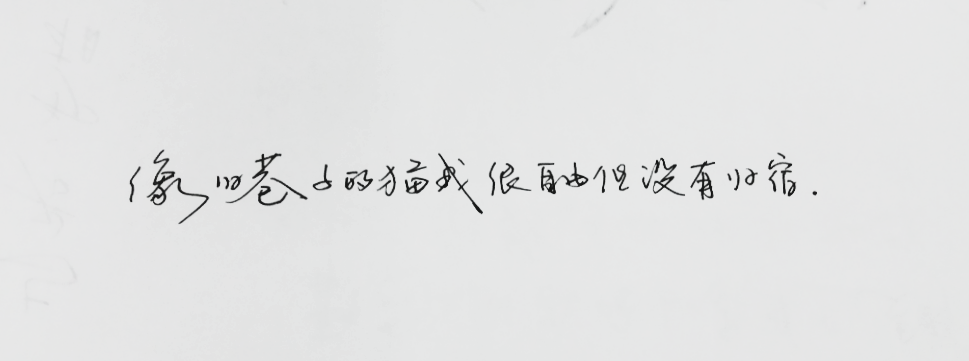 像旧巷子的猫我很自由但没有归宿.